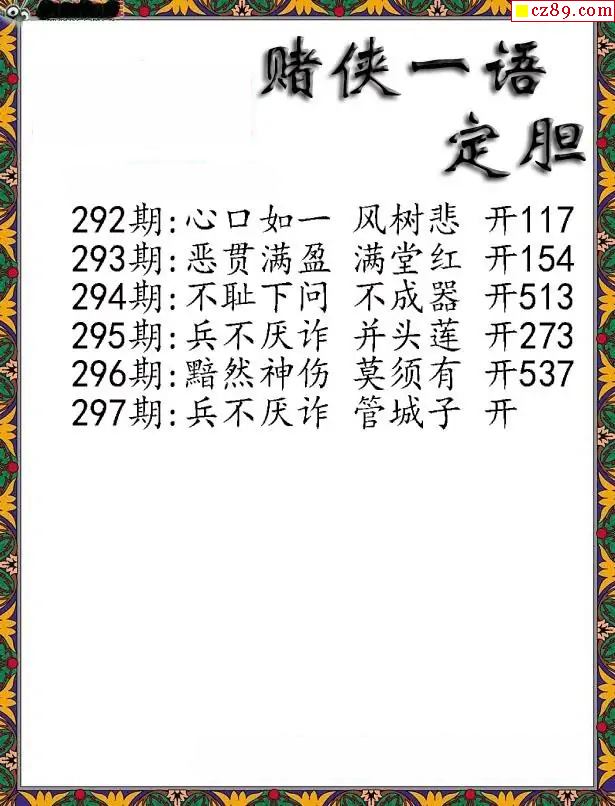 cz89.com
赌侠一语
定胆
292期:心口如一 风树悲 开117
293期:恶贯满盈 满堂红 开154
294期:不耻下问 不成器 开513
295期:兵不厌诈 并头莲 开273
296期:黯然神伤 莫须有 开537
297期:兵不厌诈 管城子 开